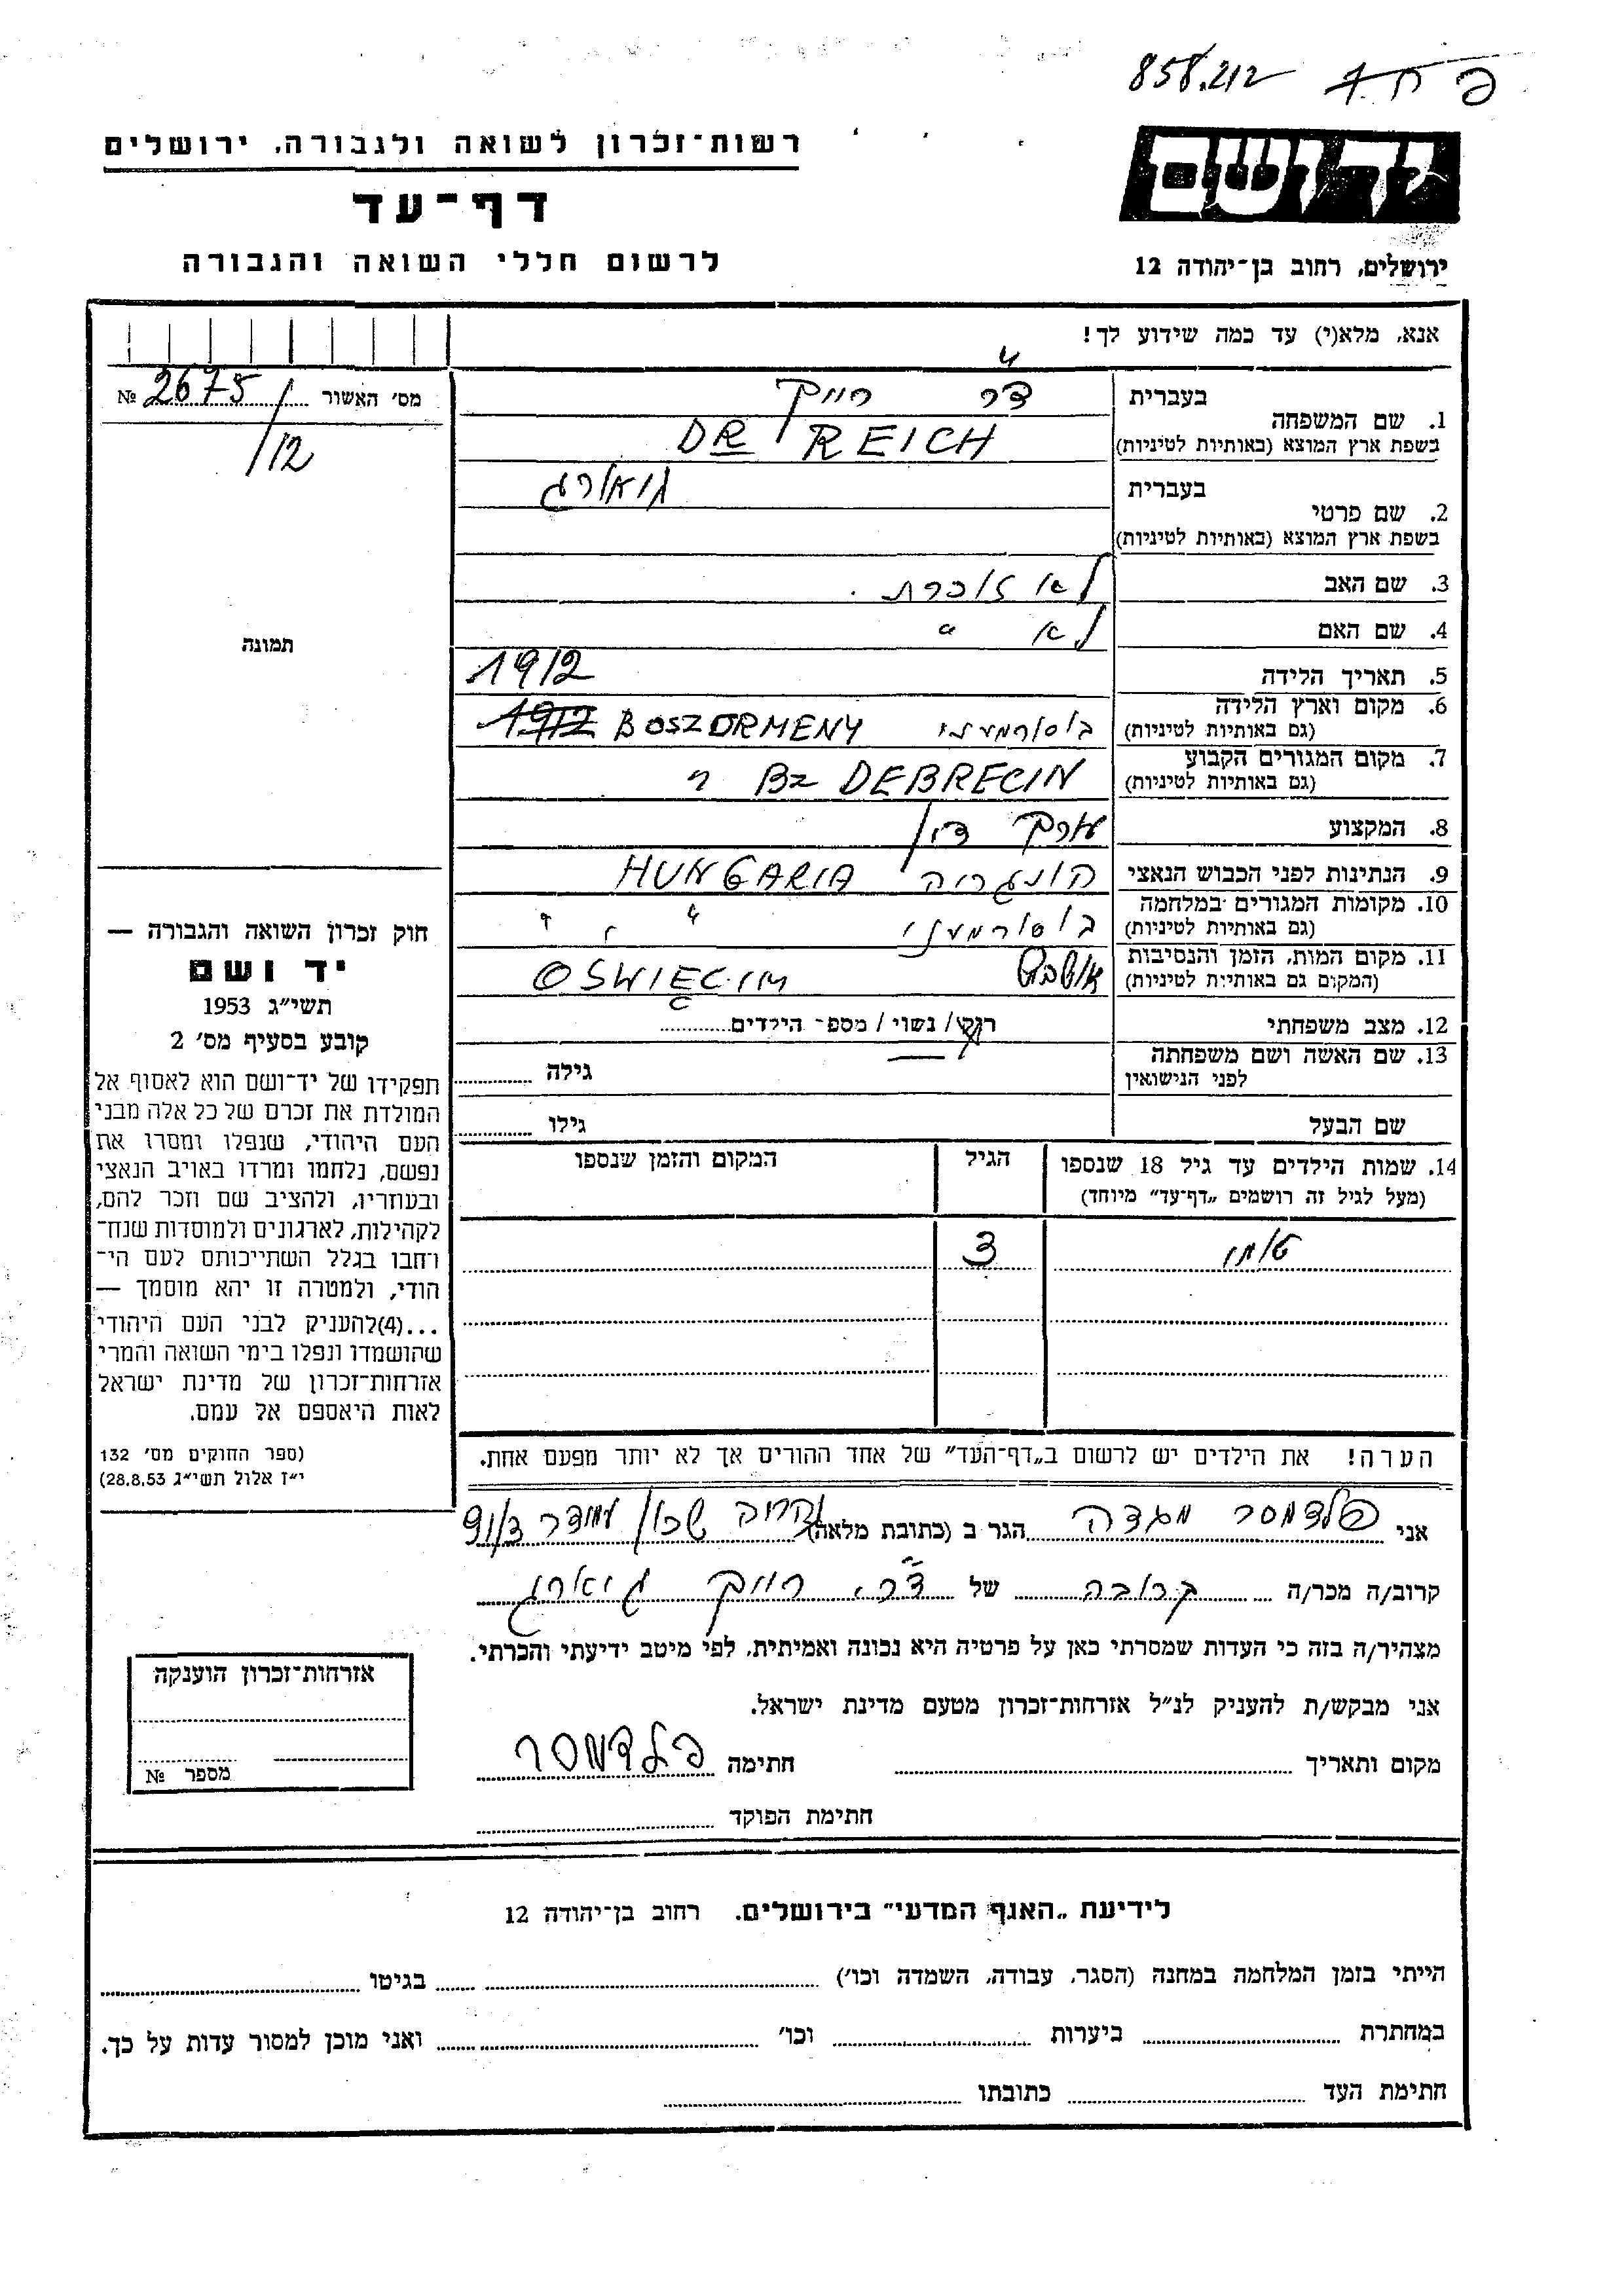 858.212
רשות־זכרון לשואה ולגבורה, ירושלים
יד ושם
דף־עד
לרשום חללי השואה והגבורה
ירושלים, רחוב בן־יהודה 12
אנא, מלא(י) עד כמה שידוע לך!
מס׳ האשור 2675 №
/12
תמונה
1. שם המשפחה
בעברית ד״ר רייך
בשפת ארץ המוצא (באותיות לטיניות) DR REICH
2. שם פרטי
בעברית גיאורג
בשפת ארץ המוצא (באותיות לטיניות)
3. שם האב לא זוכרת .
4. שם האם לא "
5. תאריך הלידה 1912
6. מקום וארץ הלידה
(גם באותיות לטיניות) בוסורמעני BOSZORMENY 1912
7. מקום המגורים הקבוע
(גם באותיות לטיניות) DEBRECIN
8. המקצוע עורך דין
9. הנתינות לפני הכבוש הנאצי הונגריה HUNGARIA
10. מקומות המגורים במלחמה
(גם באותיות לטיניות) בוסורמעני
11. מקום המות, הזמן והנסיבות
(המקום גם באותיות לטיניות) OSWIECIM
12. מצב משפחתי רווק / נשוי / מספ־ הילדים
13. שם האשה ושם משפחתה
לפני הנישואין גילה
שם הבעל גילו
14. שמות הילדים עד גיל 18 שנספו
(מעל לגיל זה רושמים „דף־עד״ מיוחד)
הגיל
המקום והזמן שנספו
טומי 3
הערה! את הילדים יש לרשום ב„דף־העד״ של אחד ההורים אך לא יותר מפעם אחת.
חוק זכרון השואה והגבורה —
יד ושם
תשי״ג 1953
קובע בסעיף מס׳ 2
תפקידו של יד־ושם הוא לאסוף אל
המולדת את זכרם של כל אלה מבני
העם היהודי, שנפלו ומסרו את
נפשם, נלחמו ומרדו באויב הנאצי
ובעוזריו, ולהציב שם וזכר להם,
לקהילות, לארגונים ולמוסדות שנח־
רחבו בגלל השתייכותם לעם הי־
הודי, ולמטרה זו יהא מוסמך —
...(4)להעניק לבני העם היהודי
שהושמדו ונפלו בימי השואה והמרי
אזרחות־זכרון של מדינת ישראל
לאות היאספם אל עמם.
(ספר החוקים מס׳ 132
י״ז אלול תשי״ג 28.8.53)
אני פלדמסר מגדה הגר ב (כתובת מלאה) שכון
קרוב/ה מכר/ה קרובה של ד״ר רייך גיאורג
מצהיר/ה בזה כי העדות שמסרתי כאן על פרטיה היא נכונה ואמיתית, לפי מיטב ידיעתי והכרתי.
אני מבקש/ת להעניק לנ״ל אזרחות־זכרון מטעם מדינת ישראל.
מקום ותאריך חתימה פלדמסר
חתימת הפוקד
אזרחות־זכרון הוענקה
מספר №
לידיעת „האגף המדעי״ בירושלים. רחוב בן־יהודה 12
הייתי בזמן המלחמה במחנה (הסגר, עבודה, השמדה וכו׳) בגיטו
במחתרת ביערות וכו׳ ואני מוכן למסור עדות על כך.
חתימת העד כתובתו